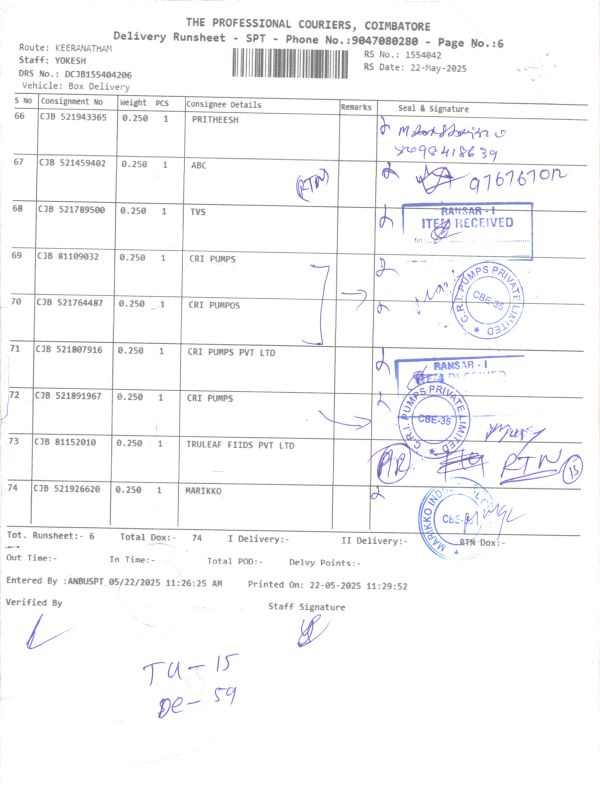 THE PROFESSIONAL COURIERS, COIMBATORE
Delivery Runsheet - SPT - Phone No.:9047080280 - Page No.:6
Route: KEERANATHAM
RS No.: 1554042
Staff: YOKESH
RS Date: 22-May-2025
DRS No.: DCJB155404206
Vehicle: Box Delivery
S No Consignment No Weight PCS Consignee Details Remarks Seal & Signature
66 CJB 521943365 0.250 1 PRITHEESH
67 CJB 521459402 0.250 1 ABC RTN
68 CJB 521789500 0.250 1 TVS
RANSAR - I
ITEM RECEIVED
69 CJB 81109032 0.250 1 CRI PUMPS
C.R.I. PUMPS PRIVATE LIMITED
CBE-35
70 CJB 521764487 0.250 1 CRI PUMPOS
71 CJB 521807916 0.250 1 CRI PUMPS PVT LTD
RANSAR - I
72 CJB 521891967 0.250 1 CRI PUMPS
C.R.I. PUMPS PRIVATE LIMITED
CBE-35
73 CJB 81152010 0.250 1 TRULEAF FIIDS PVT LTD RTN 15
74 CJB 521926620 0.250 1 MARIKKO
Tot. Runsheet:- 6 Total Dox:- 74 I Delivery:- II Delivery:- RTN Dox:-
Out Time:- In Time:- Total POD:- Delvy Points:-
Entered By :ANBUSPT 05/22/2025 11:26:25 AM Printed On: 22-05-2025 11:29:52
Verified By Staff Signature
TU - 15
De - 59